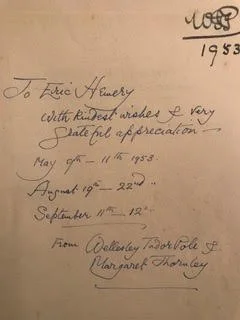 1953
To Eric Hemery
With kindest wishes & very
grateful appreciation —
May 9th — 11th 1953.
August 19th — 22nd ..
September 11th — 12th
From Wellesley Tudor Pole &
Margaret Thornley